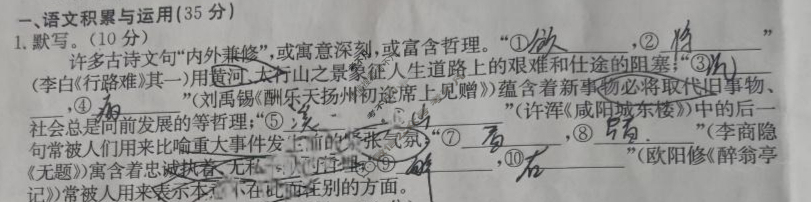 一、语文积累与运用(35分)
1.默写。(10分)
许多古诗文句“内外兼修”,或寓意深刻,或富含哲理。“①欲,②将”
(李白《行路难》其一)用黄河、太行山之景象征人生道路上的艰难和仕途的阻塞;“③沉
,④病”(刘禹锡《酬乐天扬州初逢席上见赠》)蕴含着新事物必将取代旧事物、
社会总是向前发展的等哲理;“⑤ 山”(许浑《咸阳城东楼》)中的后一
句常被人们用来比喻重大事件发生前的紧张气氛;“⑦,⑧”(李商隐
《无题》)寓含着忠诚执着、无私 ⑨醉,⑩在”(欧阳修《醉翁亭
记》)常被人用来表示本意不在此而在别的方面。